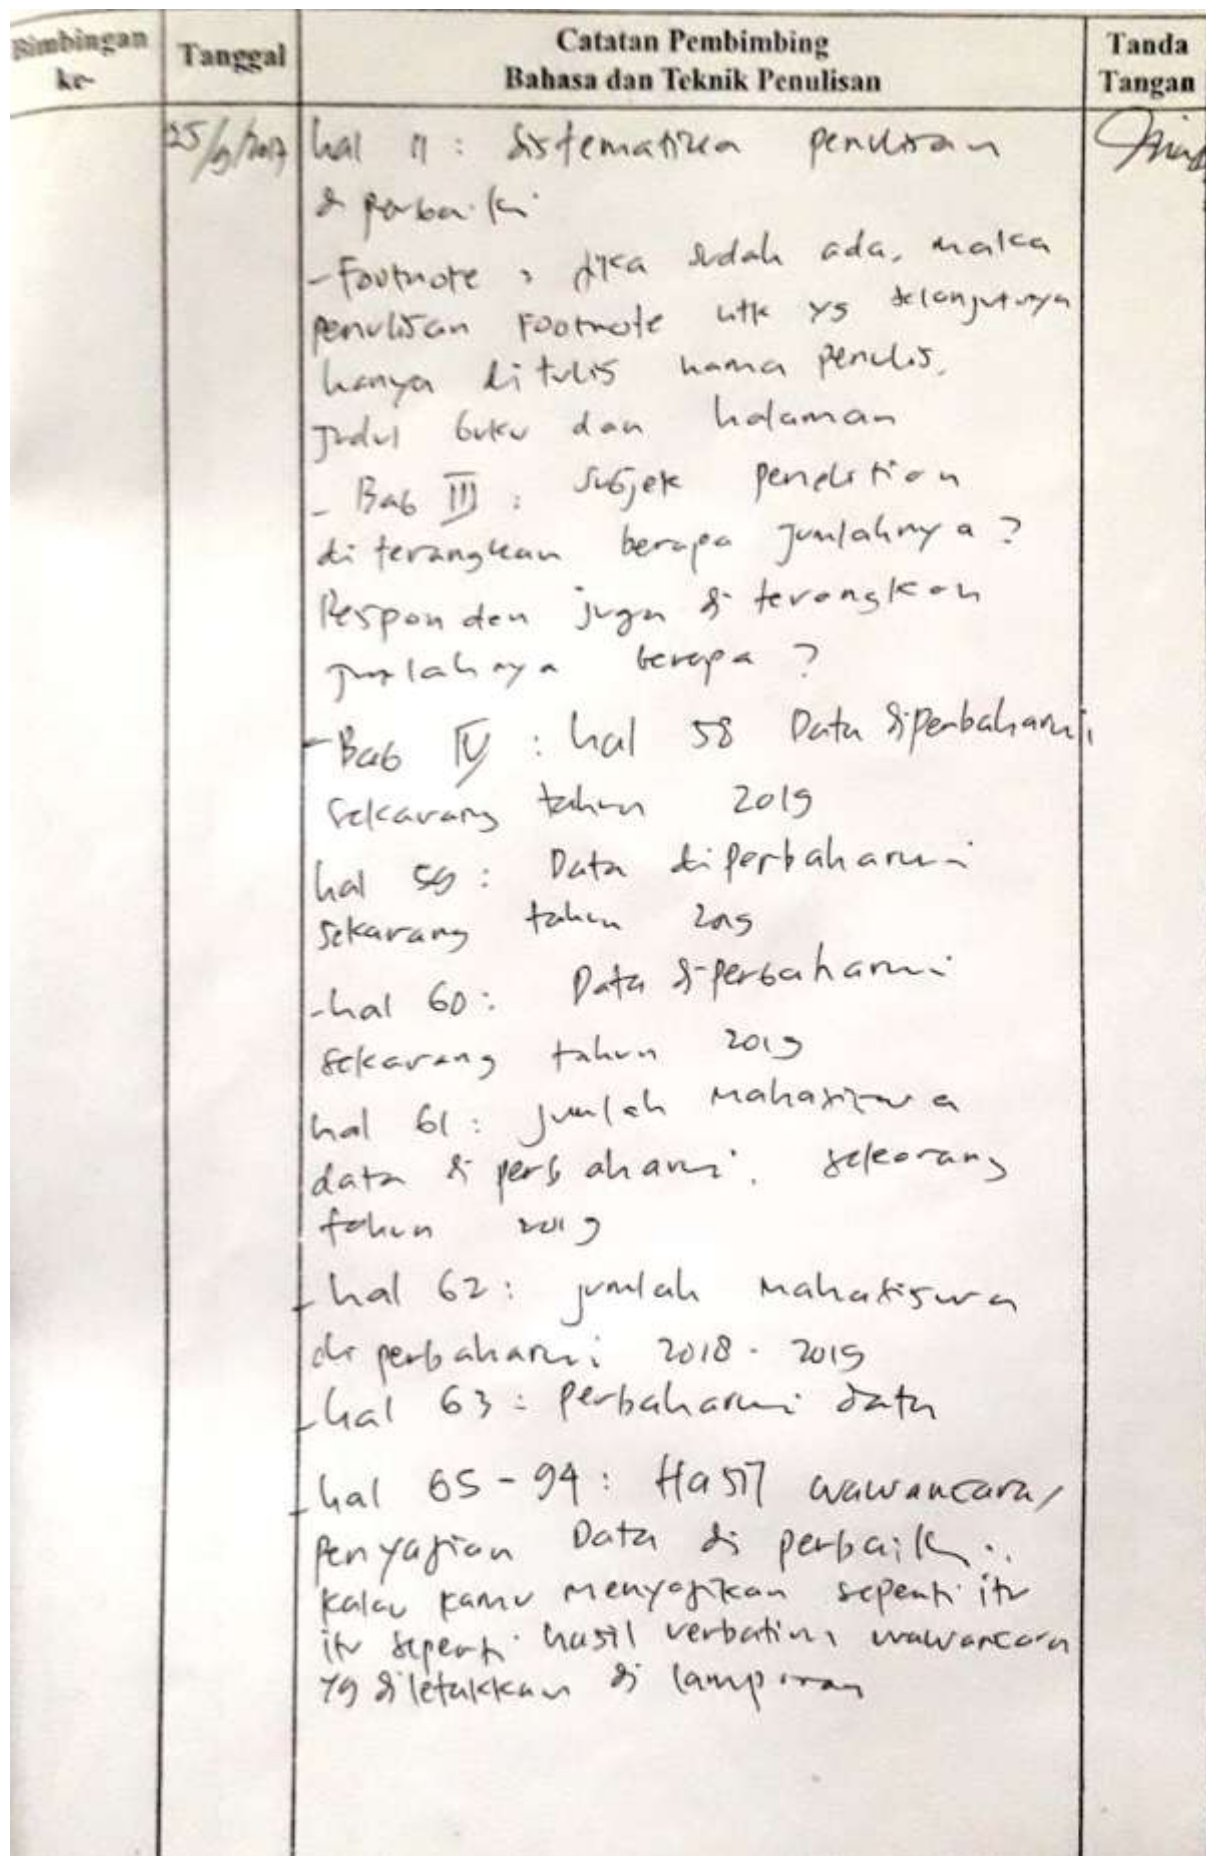 Bimbingan ke-
Tanggal
Catatan Pembimbing
Bahasa dan Teknik Penulisan
Tanda Tangan
hal 11 : Sistematika penulisan
diperbaiki
- Footnote, jika sudah ada, maka
penulisan Footnote utk yg selanjutnya
hanya ditulis nama penulis,
judul buku dan halaman
- Bab III : Subjek penelitian
diterangkan berapa jumlahnya?
Responden juga diterangkan
jumlahnya berapa?
- Bab IV : hal 58 Data diperbaharui
sekarang tahun 2019
hal 59 : Data diperbaharui
sekarang tahun 2019
- hal 60 : Data diperbaharui
sekarang tahun 2019
hal 61 : jumlah Mahasiswa
data diperbaharui. sekarang
tahun 2019
- hal 62 : jumlah Mahasiswa
diperbaharui 2018 - 2019
- hal 63 : Perbaharui data
- hal 65 - 94 : Hasil wawancara/
Penyajian Data diperbaiki.
Kalau kamu menyajikan seperti itu
itu seperti hasil verbatim wawancara
yg diletakkan di lampiran